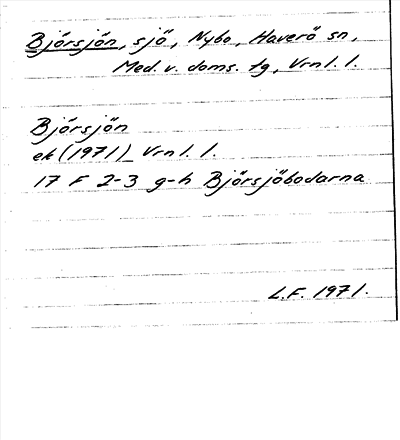 Björsjön, sjö, Nybo, Haverö sn,
Med. v. doms. tg, Vrnl. l.
Björsjön
ek (1971) Vrnl. l.
17 F 2-3 g-h Björsjöbodarna
L.F. 1971.